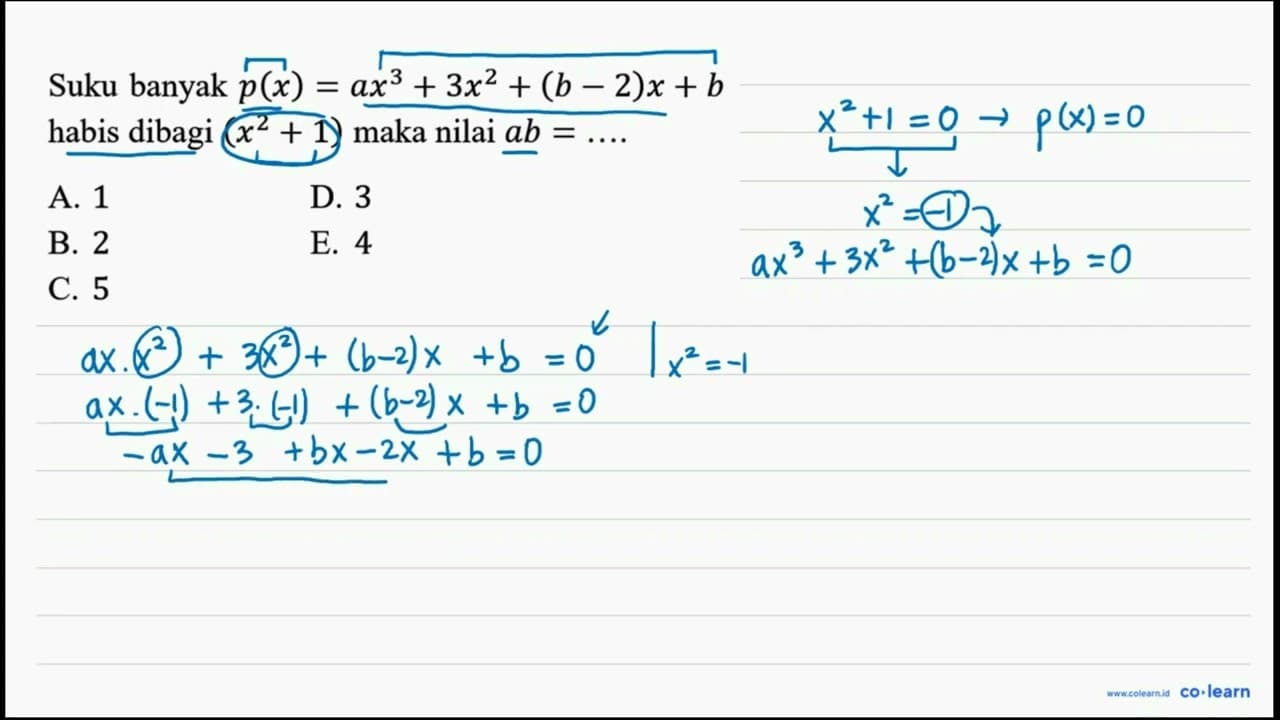 Suku banyak p(x) = ax³ + 3x² + (b − 2)x + b
habis dibagi (x² + 1) maka nilai ab = ….
A. 1
D. 3
B. 2
E. 4
C. 5
x²+1 = 0 → p(x) = 0
x² = -1
ax³ + 3x² + (b-2)x + b = 0
ax.x² + 3x² + (b-2)x + b = 0 | x² = -1
ax.(-1) + 3.(-1) + (b-2)x + b = 0
-ax - 3 + bx - 2x + b = 0
www.colearn.id co·learn